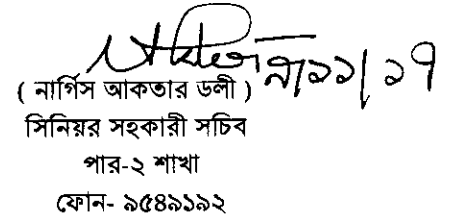 ( নার্গিস আকতার ডলী )
সিনিয়র সহকারী সচিব
পার-২ শাখা
ফোন- ৯৫৪৯১৯২